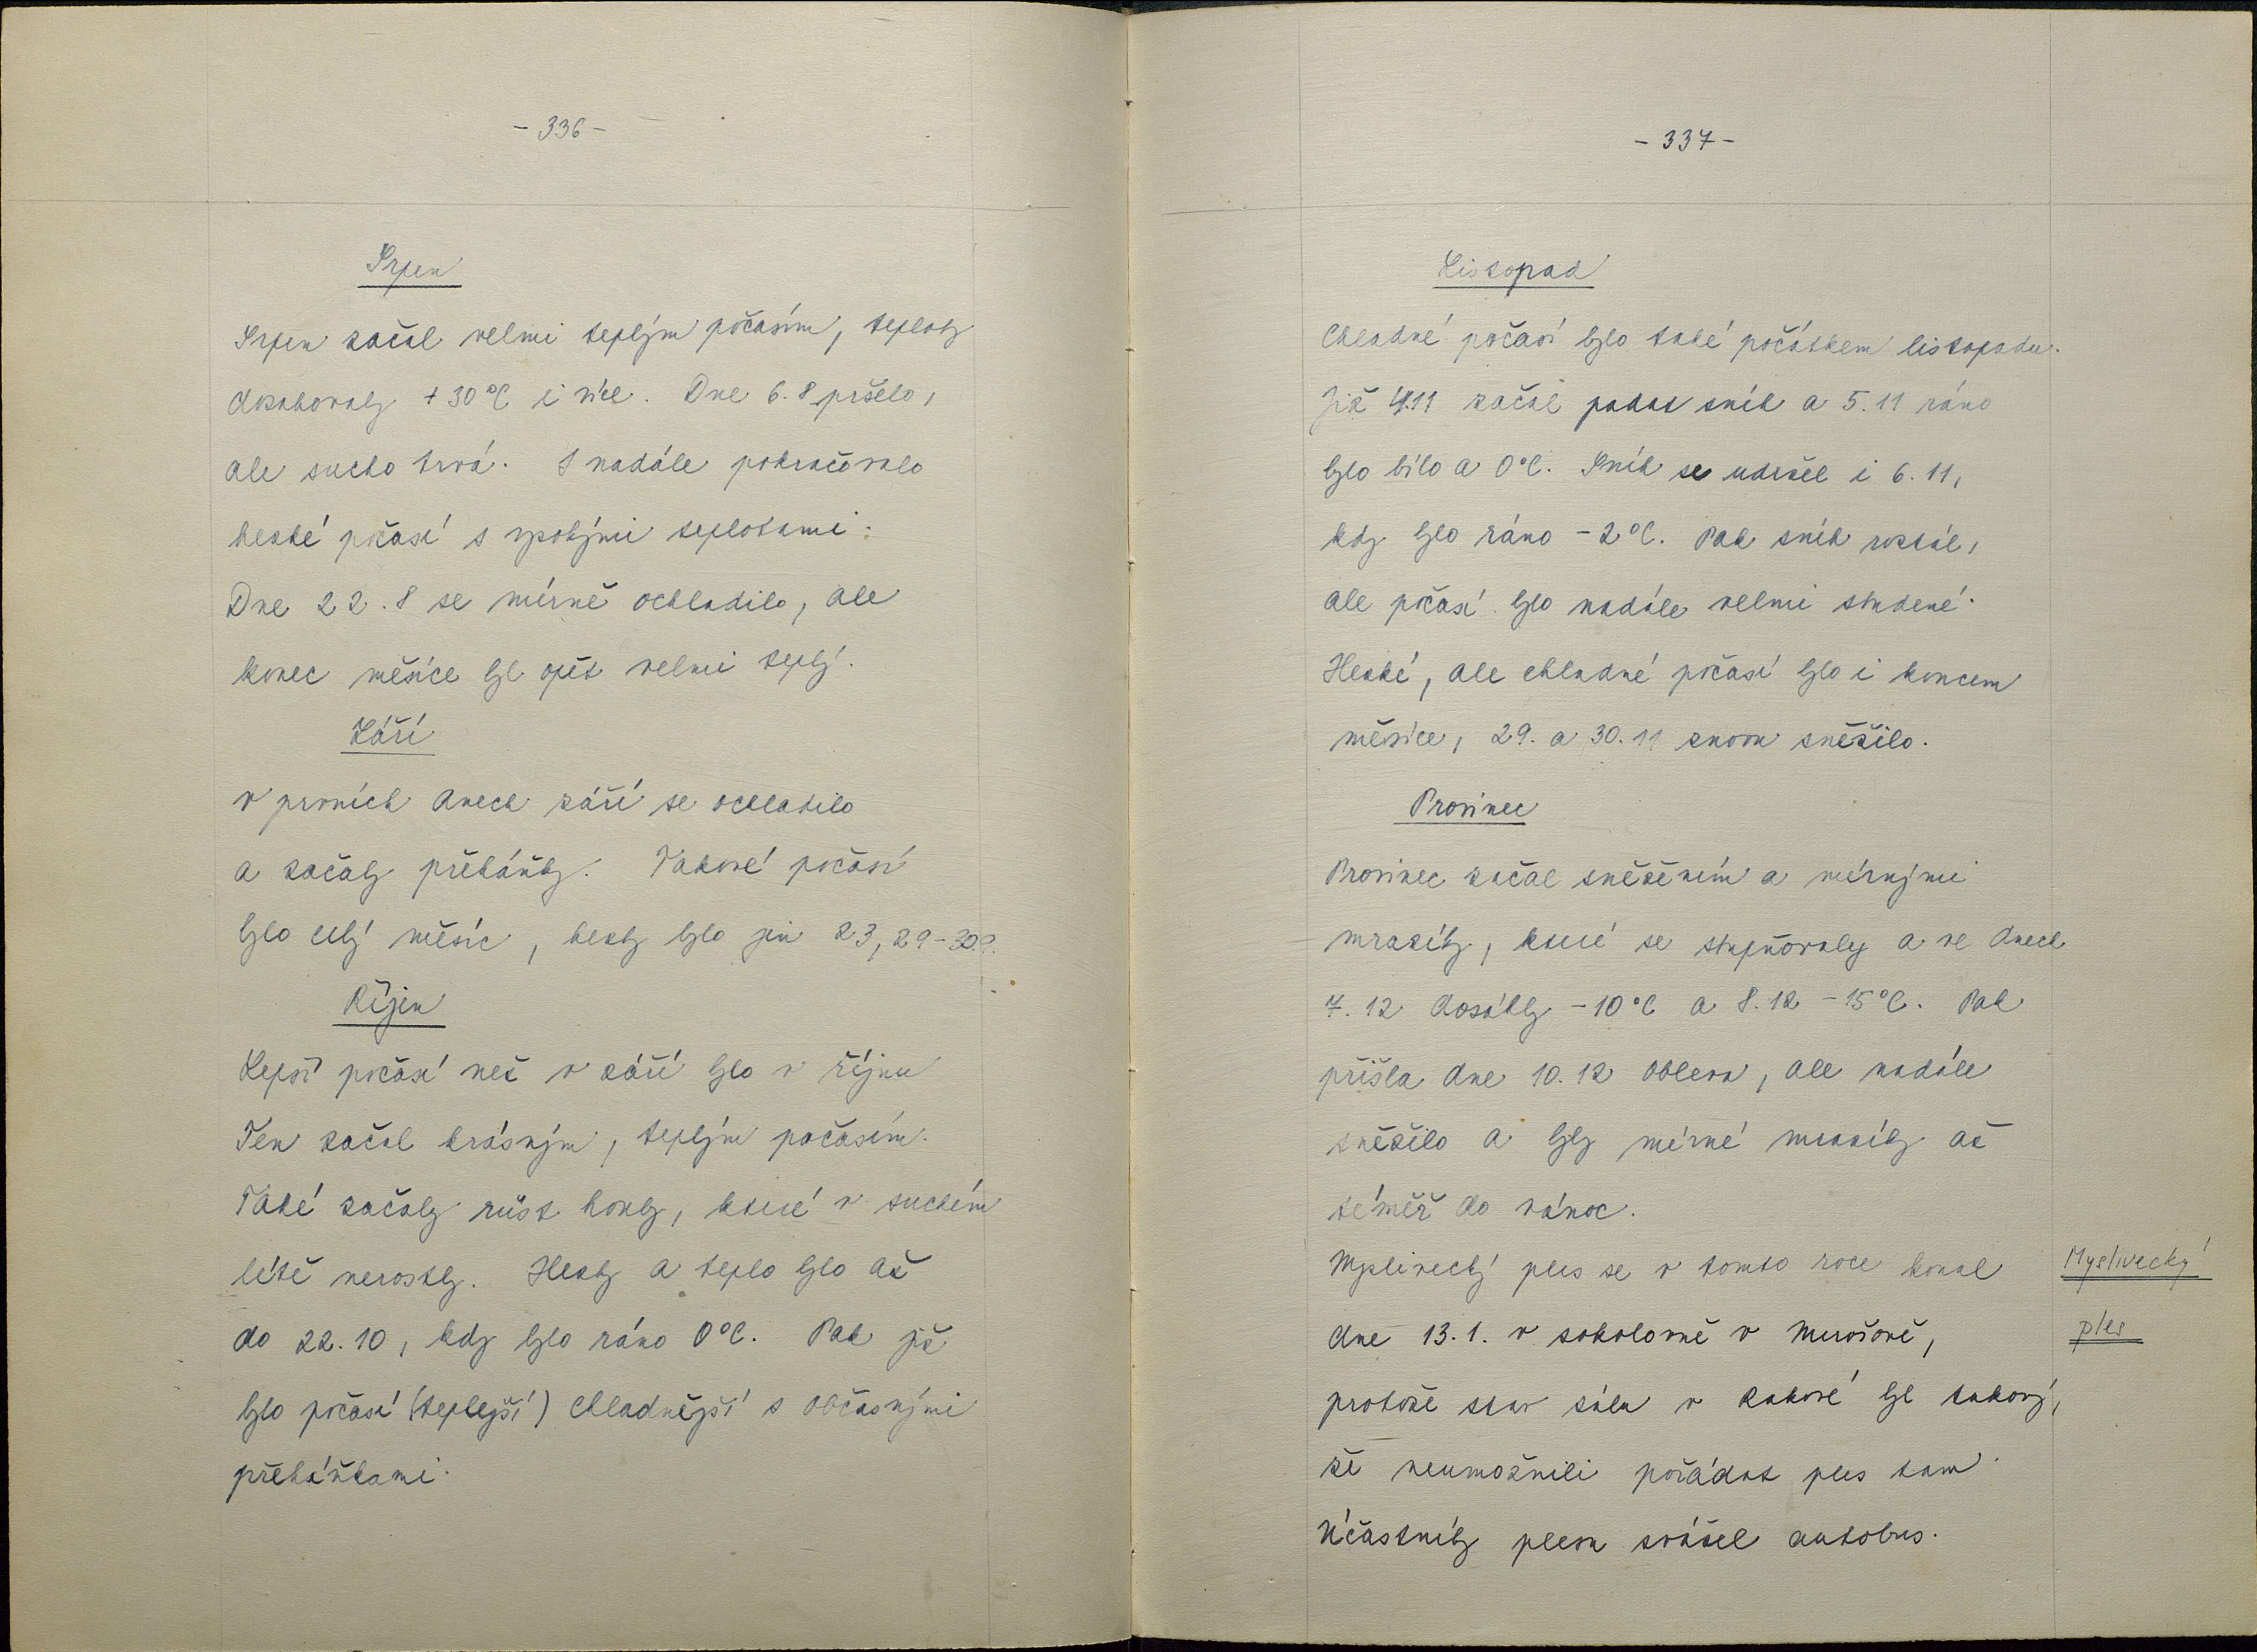 - 336 -
Srpen
Srpen začal velmi teplým počasím, teploty
dosahovaly +30°C i více. Dne 6.8 pršelo,
ale sucho trvá. I nadále pokračovalo
hezké počasí s vysokými teplotami.
Dne 22.8 se mírně ochladilo, ale
konec měsíce byl opět velmi teplý.
Září
V prvních dnech září se ochladilo
a začaly přeháňky. Takové počasí
bylo celý měsíc, hezky bylo jen 23, 29-30.9.
Říjen
Lepší počasí než v září bylo v říjnu
Ten začal krásným, teplým počasím.
Také začaly růst houby, které v suchém
létě nerostly. Hezky a teplo bylo až
do 22.10, kdy bylo ráno 0°C. Pak již
bylo počasí (teplejší) chladnější s občasnými
přeháňkami.
- 337 -
Listopad
Chladné počasí bylo také počátkem listopadu.
Již 4.11 začal padat sníh a 5.11 ráno
bylo bílo a 0°C. Sníh se udržel i 6.11,
kdy bylo ráno -2°C. Pak sníh roztál,
ale počasí bylo nadále velmi studené.
Hezké, ale chladné počasí bylo i koncem
měsíce, 29. a 30.11 znovu sněžilo.
Prosinec
Prosinec začal sněžením a mírnými
mrazíky, které se stupňovaly a ve dnech
7.12 dosáhly -10°C a 8.12 -15°C. Pak
přišla dne 10.12 obleva, ale nadále
sněžilo a byly mírné mrazíky až
téměř do vánoc.
Myslivecký ples se v tomto roce konal
Myslivecký
dne 13.1. v sokolovně v Mirošově,
ples
protože stav sálu v Kakové byl takový,
že neumožnili pořádat ples tam.
Účastníky plesu svážel autobus.